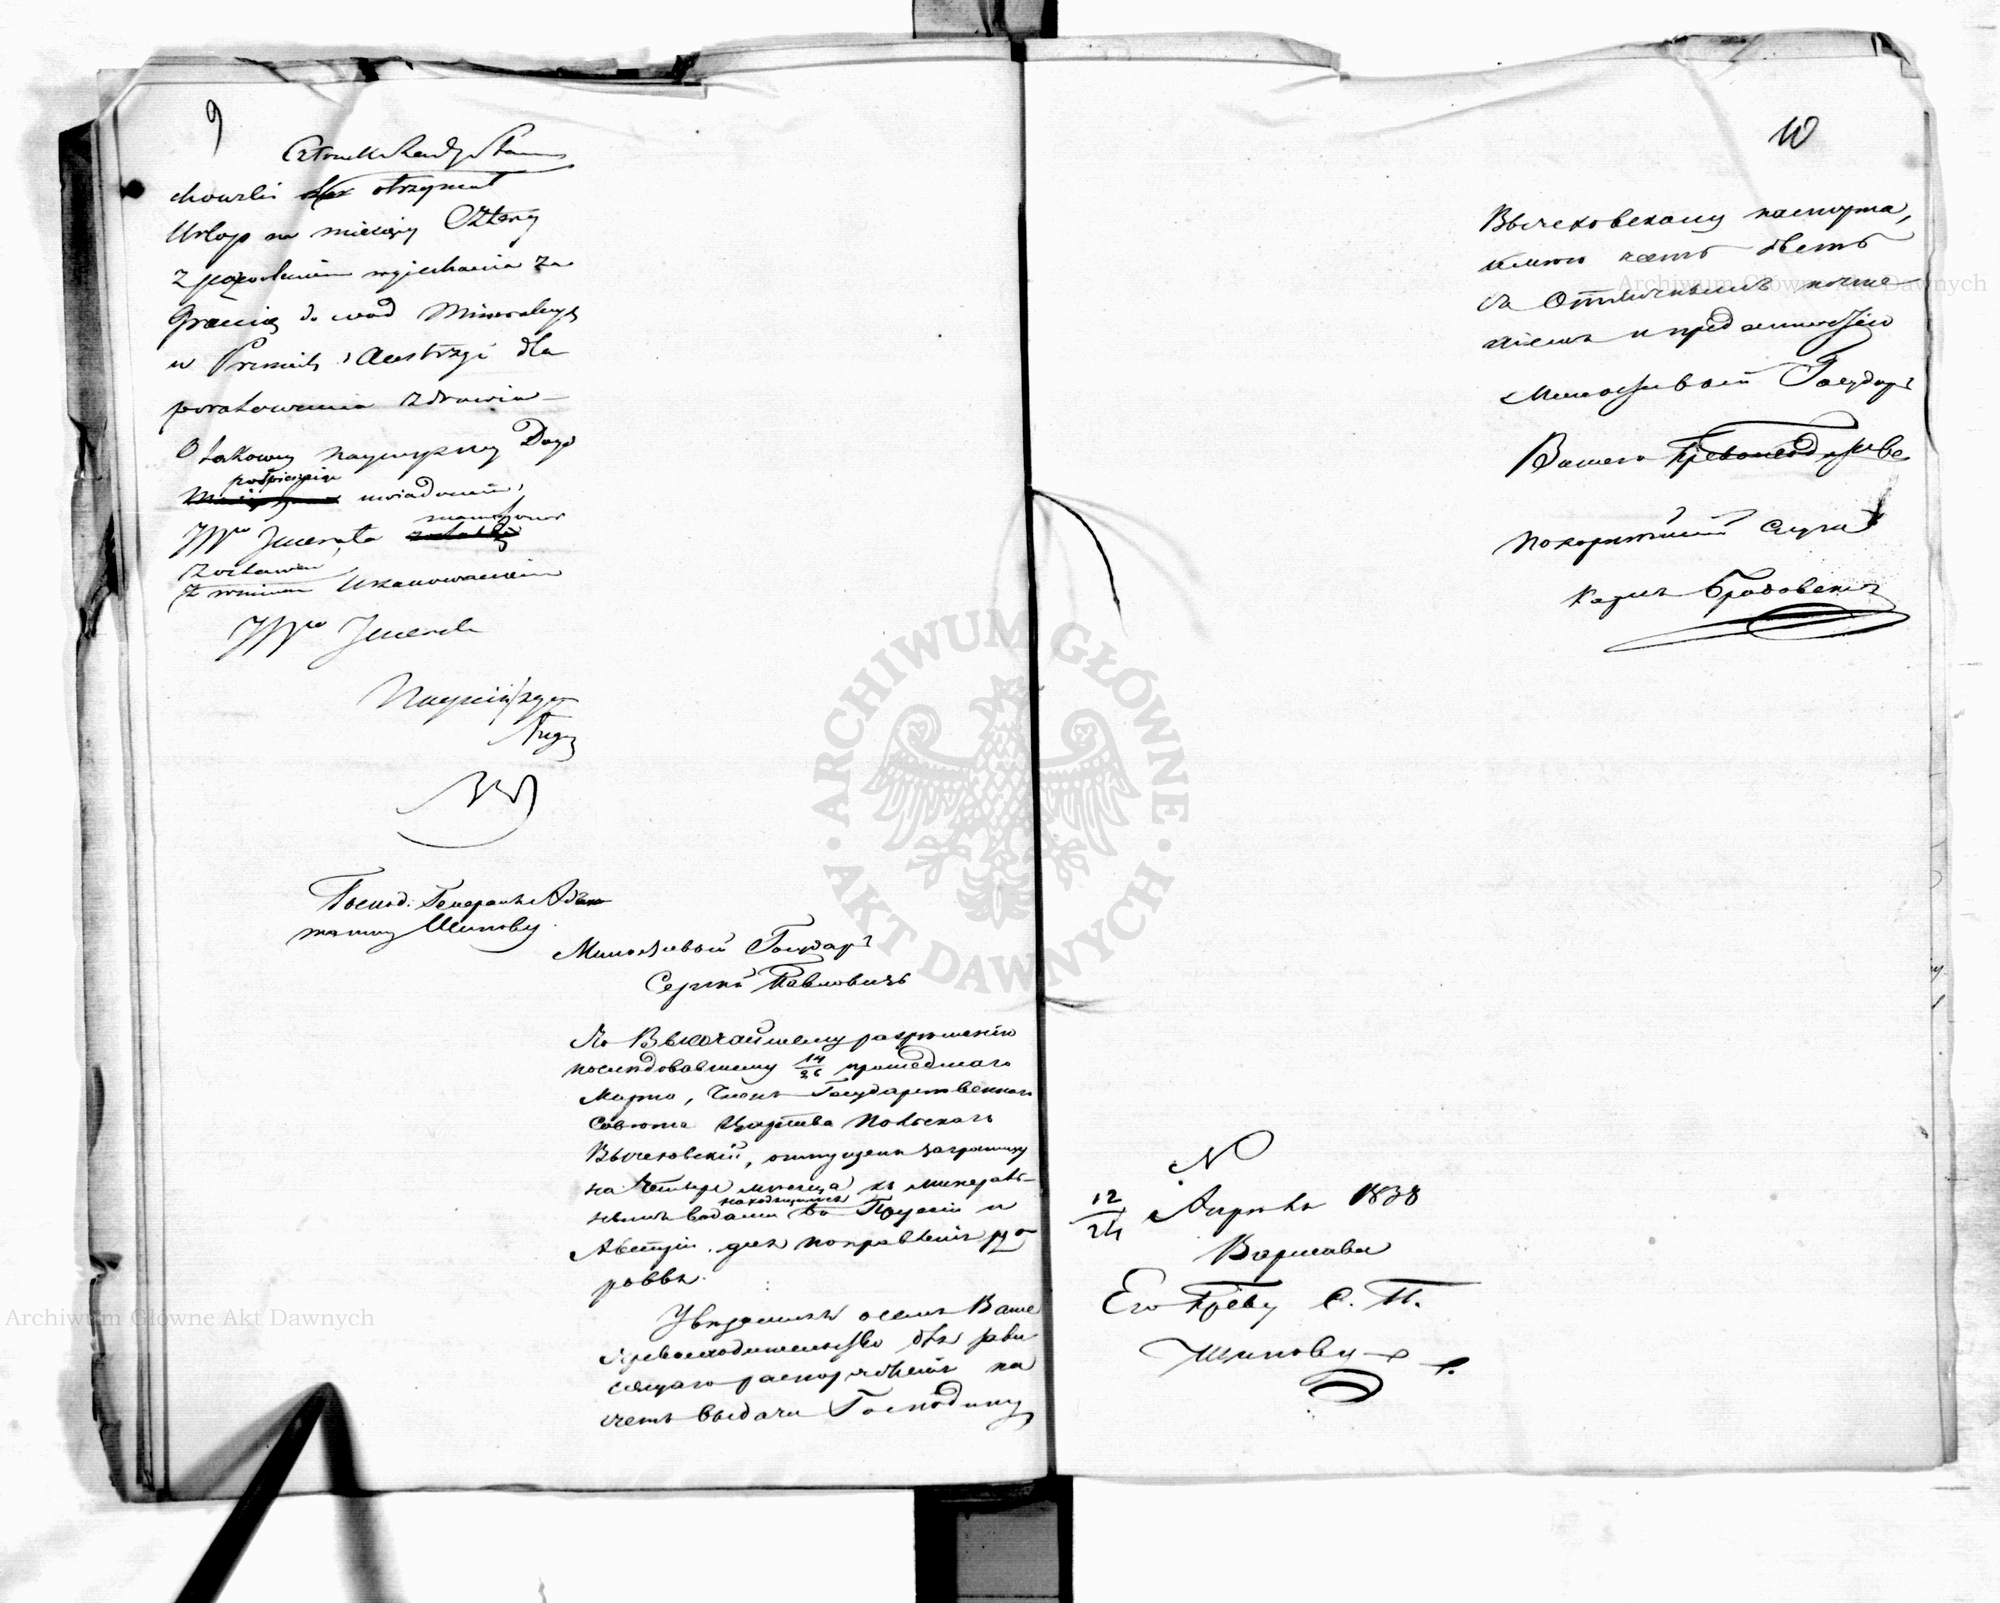 9
Członek Rady Stanu
chowski otrzymał
Urlop na miesięcy Cztery
z pozwoleniem wyjechania za
Granicę do wód Mineralnych
w Prusach i Austryi dla
poratowania zdrowia
O takowey naywyższey Decy
pośpieszając
uwiadomić,
JWgo Jenerała
zostawiam
Uszanowaniem
JWgo Jenerała
Nayniższy
Sługa
Господ. Генералъ Адъю
танту Шипову
Милостивый Государь
Сергій Павловичъ
По Высочайшему разрешенію
последовавшему 14/26 прошедшаго
Марта, Членъ Государственнаго
Совѣта Царства Польскаго
Вычеховскій, отпущенъ заграницу
на четыре мѣсяца къ минераль-
находящимся
нымъ водамъ въ Пруссіи и
Австріи для поправленія здо
ровья.
Увѣдомляя о семъ Ваше
Превосходительство для зави
сящаго распоряженія на
счетъ выдачи Господину
10
Вычеховскому паспорта,
имѣю честь быть
съ Отличнымъ почте
ніемъ и преданностію
Милостивый Государь
Вашего Превосходительства
Покорнѣйший Слуга
N
12/24 Апрѣля 1838
Варшава
Его Прев-ву С. П.
Шипову
Archiwum Główne Akt Dawnych
Archiwum Główne Akt Dawnych
ARCHIWUM GŁÓWNE · AKT DAWNYCH ·